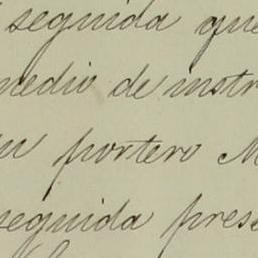 seguida que
medio de instr
su portero M
seguida pres